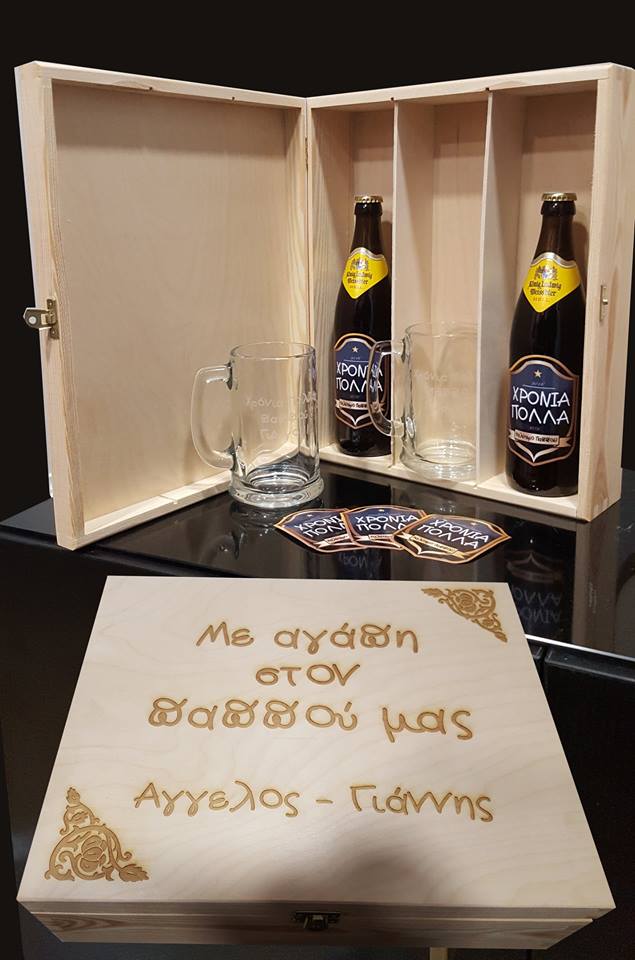 König Ludwig
Weissbier
HELL
ΧΡΟΝΙΑ
ΠΟΛΛΑ
König Ludwig
Weissbier
HELL
ΧΡΟΝΙΑ
ΠΟΛΛΑ
Χρόνια Πολλά
Παππού
ΧΡΟΝΙΑ
ΠΟΛΛΑ
ΧΡΟΝΙΑ
ΠΟΛΛΑ
ΧΡΟΝΙΑ
ΠΟΛΛΑ
Με αγάπη
στον
παππού μας
Αγγελος - Γιάννης